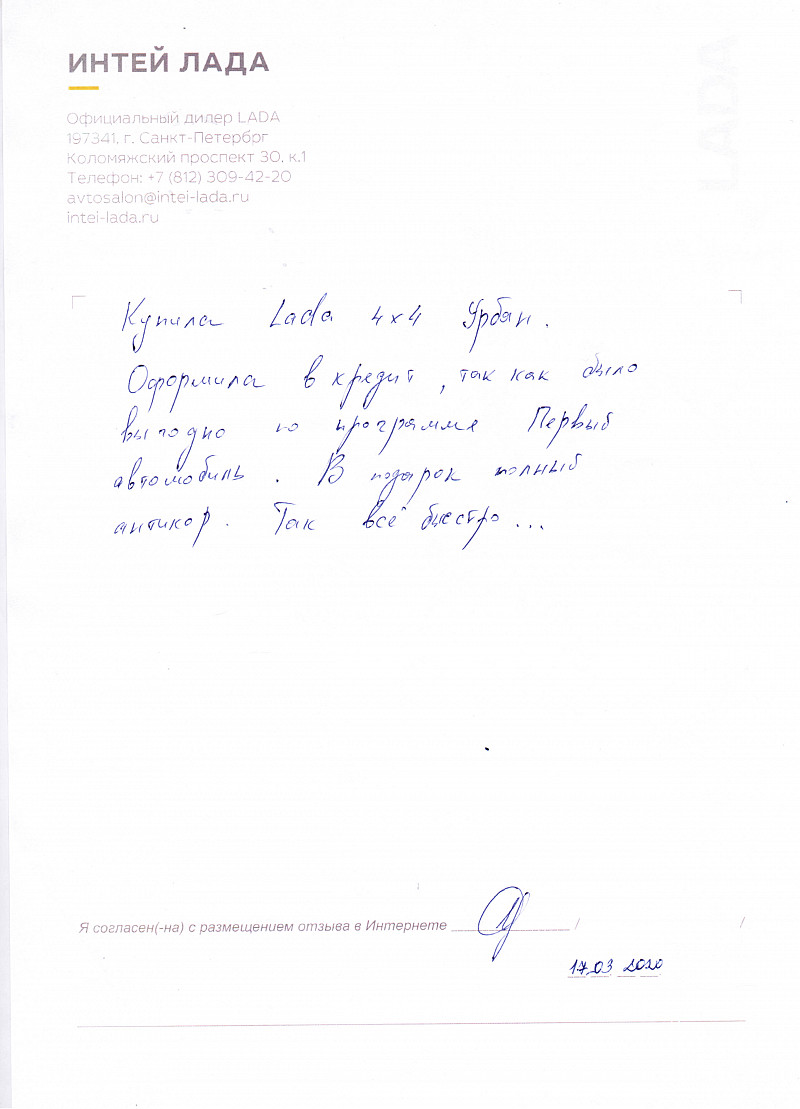 ИНТЕЙ ЛАДА
Официальный дилер LADA
197341, г. Санкт-Петербрг
Коломяжский проспект 30, к.1
Телефон: +7 (812) 309-42-20
avtosalon@intei-lada.ru
intei-lada.ru
Купила Lada 4x4 Урбан.
Оформила в кредит, так как было
выгодно по программе Первый
автомобиль. В подарок полный
антикор. Так всё быстро...
Я согласен(-на) с размещением отзыва в Интернете / /
17.03 2020